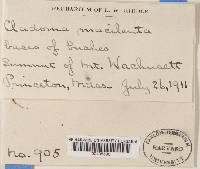 HERBARIUM OF L. W. RIDDLE
Cladonia macilenta
bases of bushes
Summit of Mt. Wachusett
Princeton, Mass. July 26, 1911
no. 905
HARVARD
UNIVERSITY